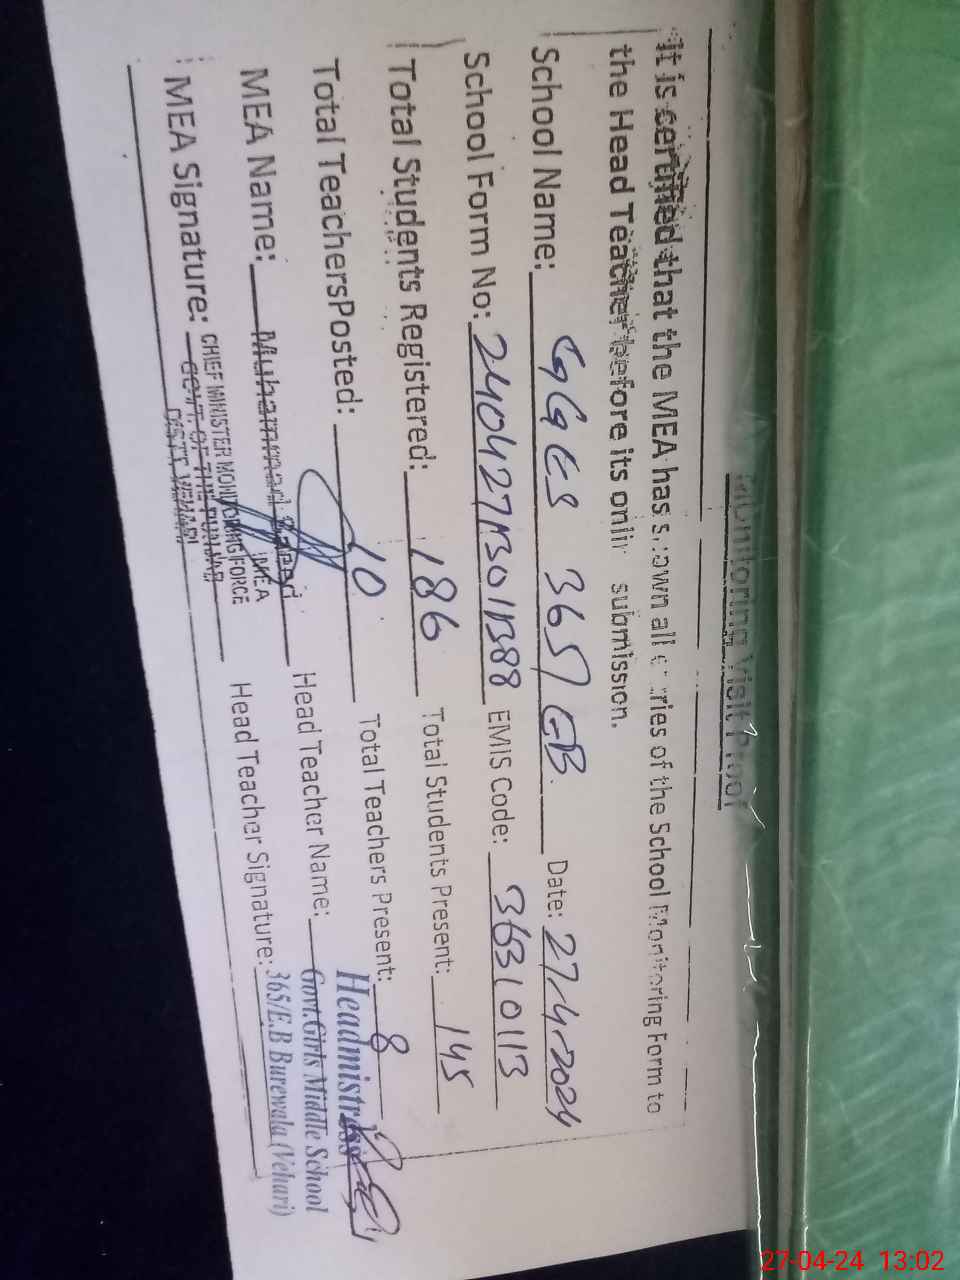 Monitoring Visit Proof
it is certified that the MEA has shown all entries of the School Monitoring Form to
the Head Teacher before its online submission.
School Name: GGES 365/EB. Date: 27/4/2024
School Form No: EMIS Code: 36310113
Total Students Registered: 186 Total Students Present: 145
Total TeachersPosted: 10 Total Teachers Present: 8
MEA Name: Muhammad Saeed Head Teacher Name:
MEA
MEA Signature: Head Teacher Signature:
CHIEF MINISTER MONITORING FORCE
GOVT. OF THE PUNJAB
DISTT. VEHARI
Headmistress
Govt.Girls Middle School
365/E.B Burewala (Vehari)
27-04-24 13:02